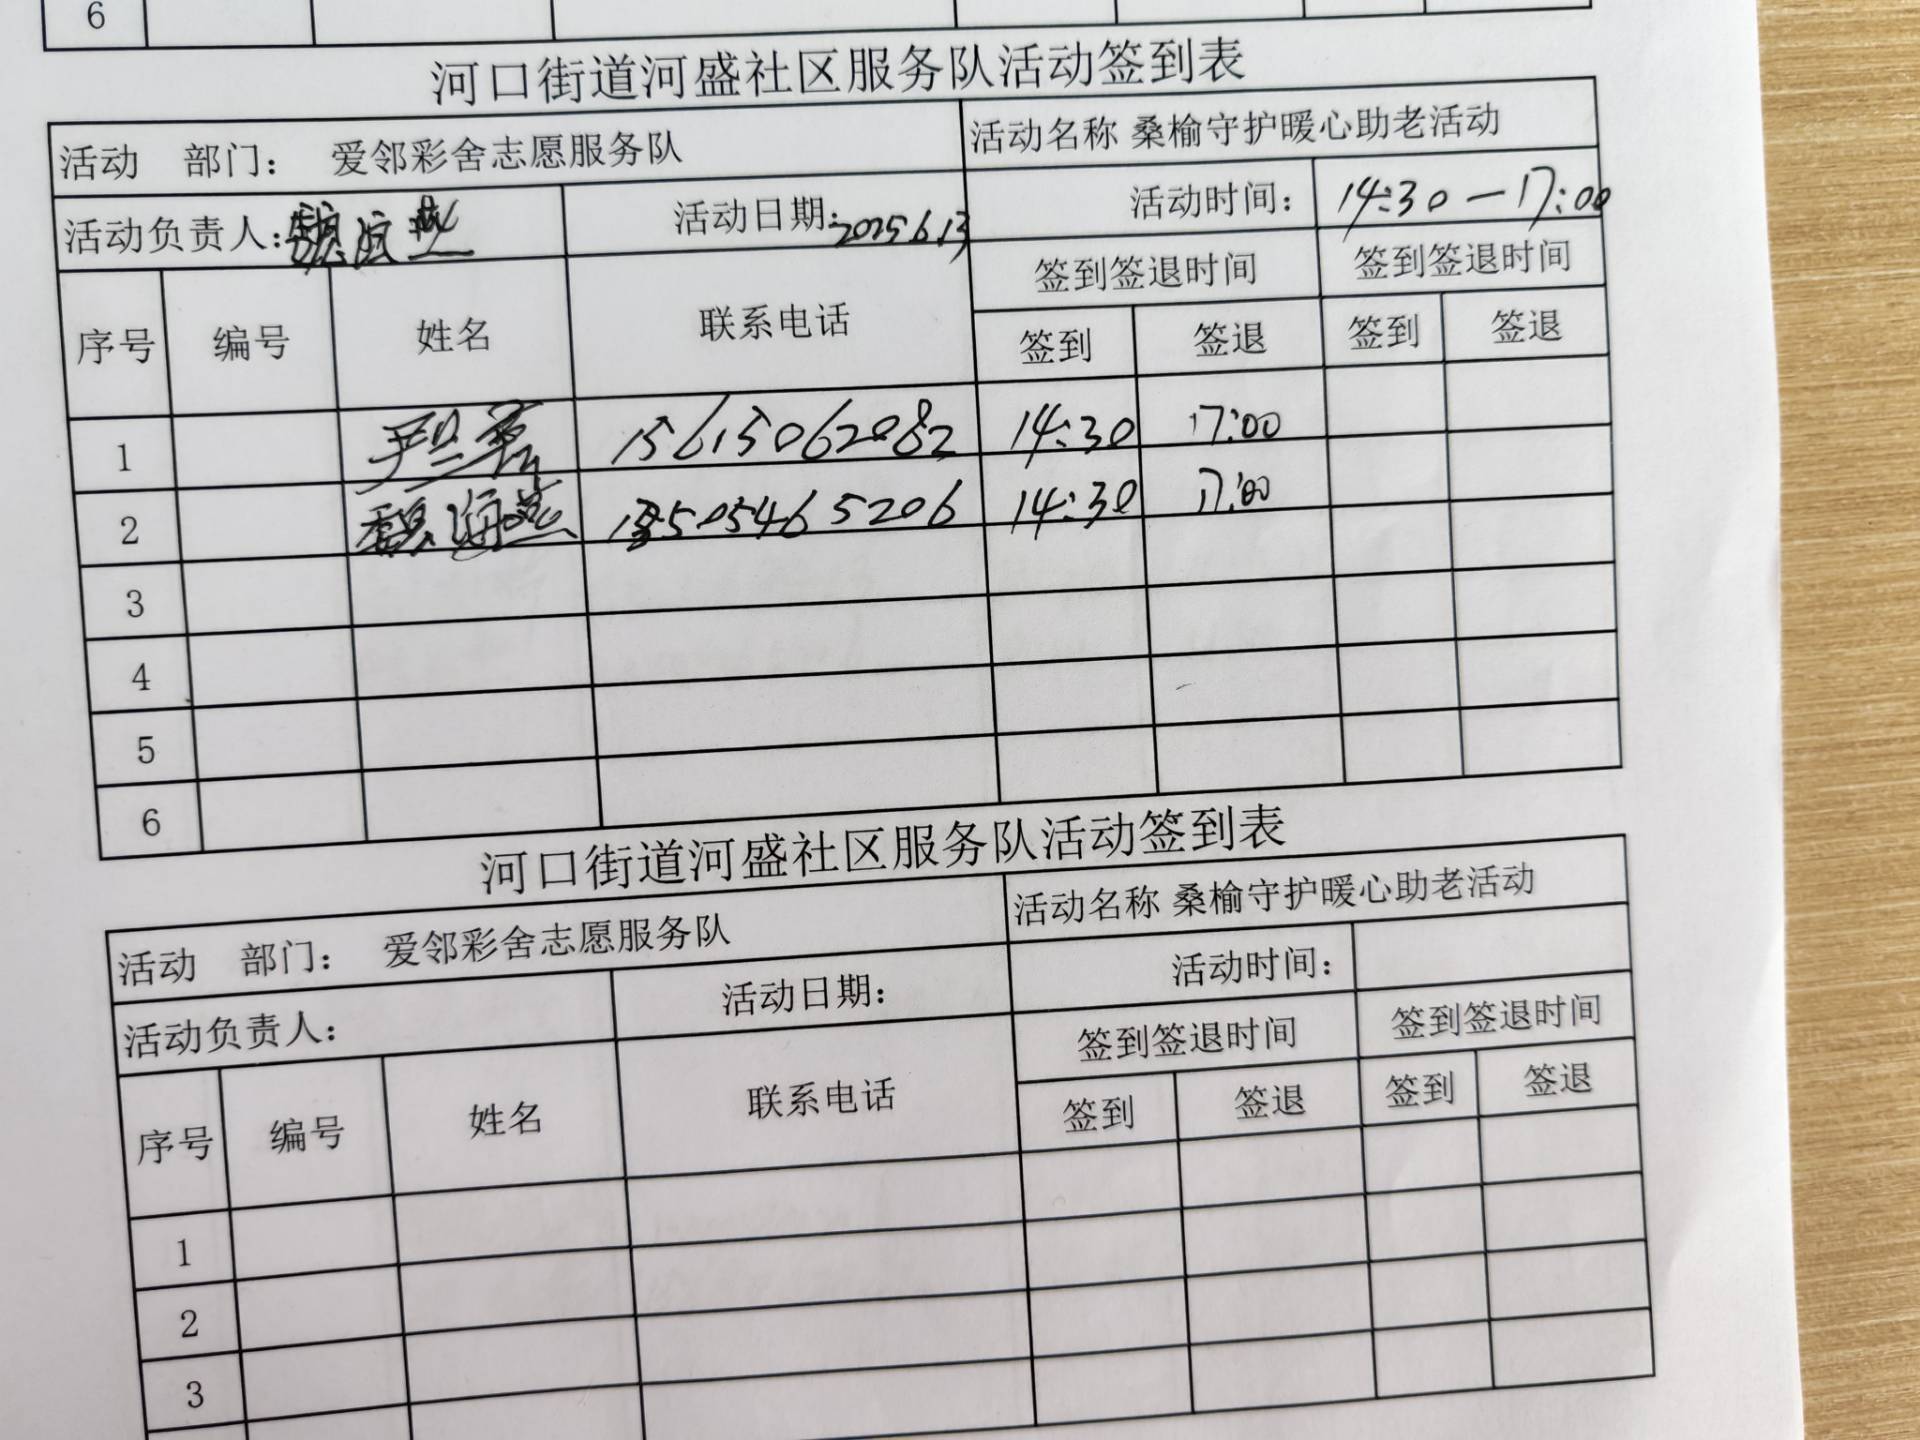 6
河口街道河盛社区服务队活动签到表
活动 部门: 爱邻彩舍志愿服务队 活动名称 桑榆守护暖心助老活动
活动负责人: 魏海燕 活动日期: 2025.6.13 活动时间: 14:30—17:00
签到签退时间 签到签退时间
序号 编号 姓名 联系电话 签到 签退 签到 签退
1 尹兰 15615062082 14:30 17:00
2 魏海燕 14:30 17:00
3
4
5
6
河口街道河盛社区服务队活动签到表
活动 部门: 爱邻彩舍志愿服务队 活动名称 桑榆守护暖心助老活动
活动负责人: 活动日期: 活动时间:
签到签退时间 签到签退时间
序号 编号 姓名 联系电话 签到 签退 签到 签退
1
2
3